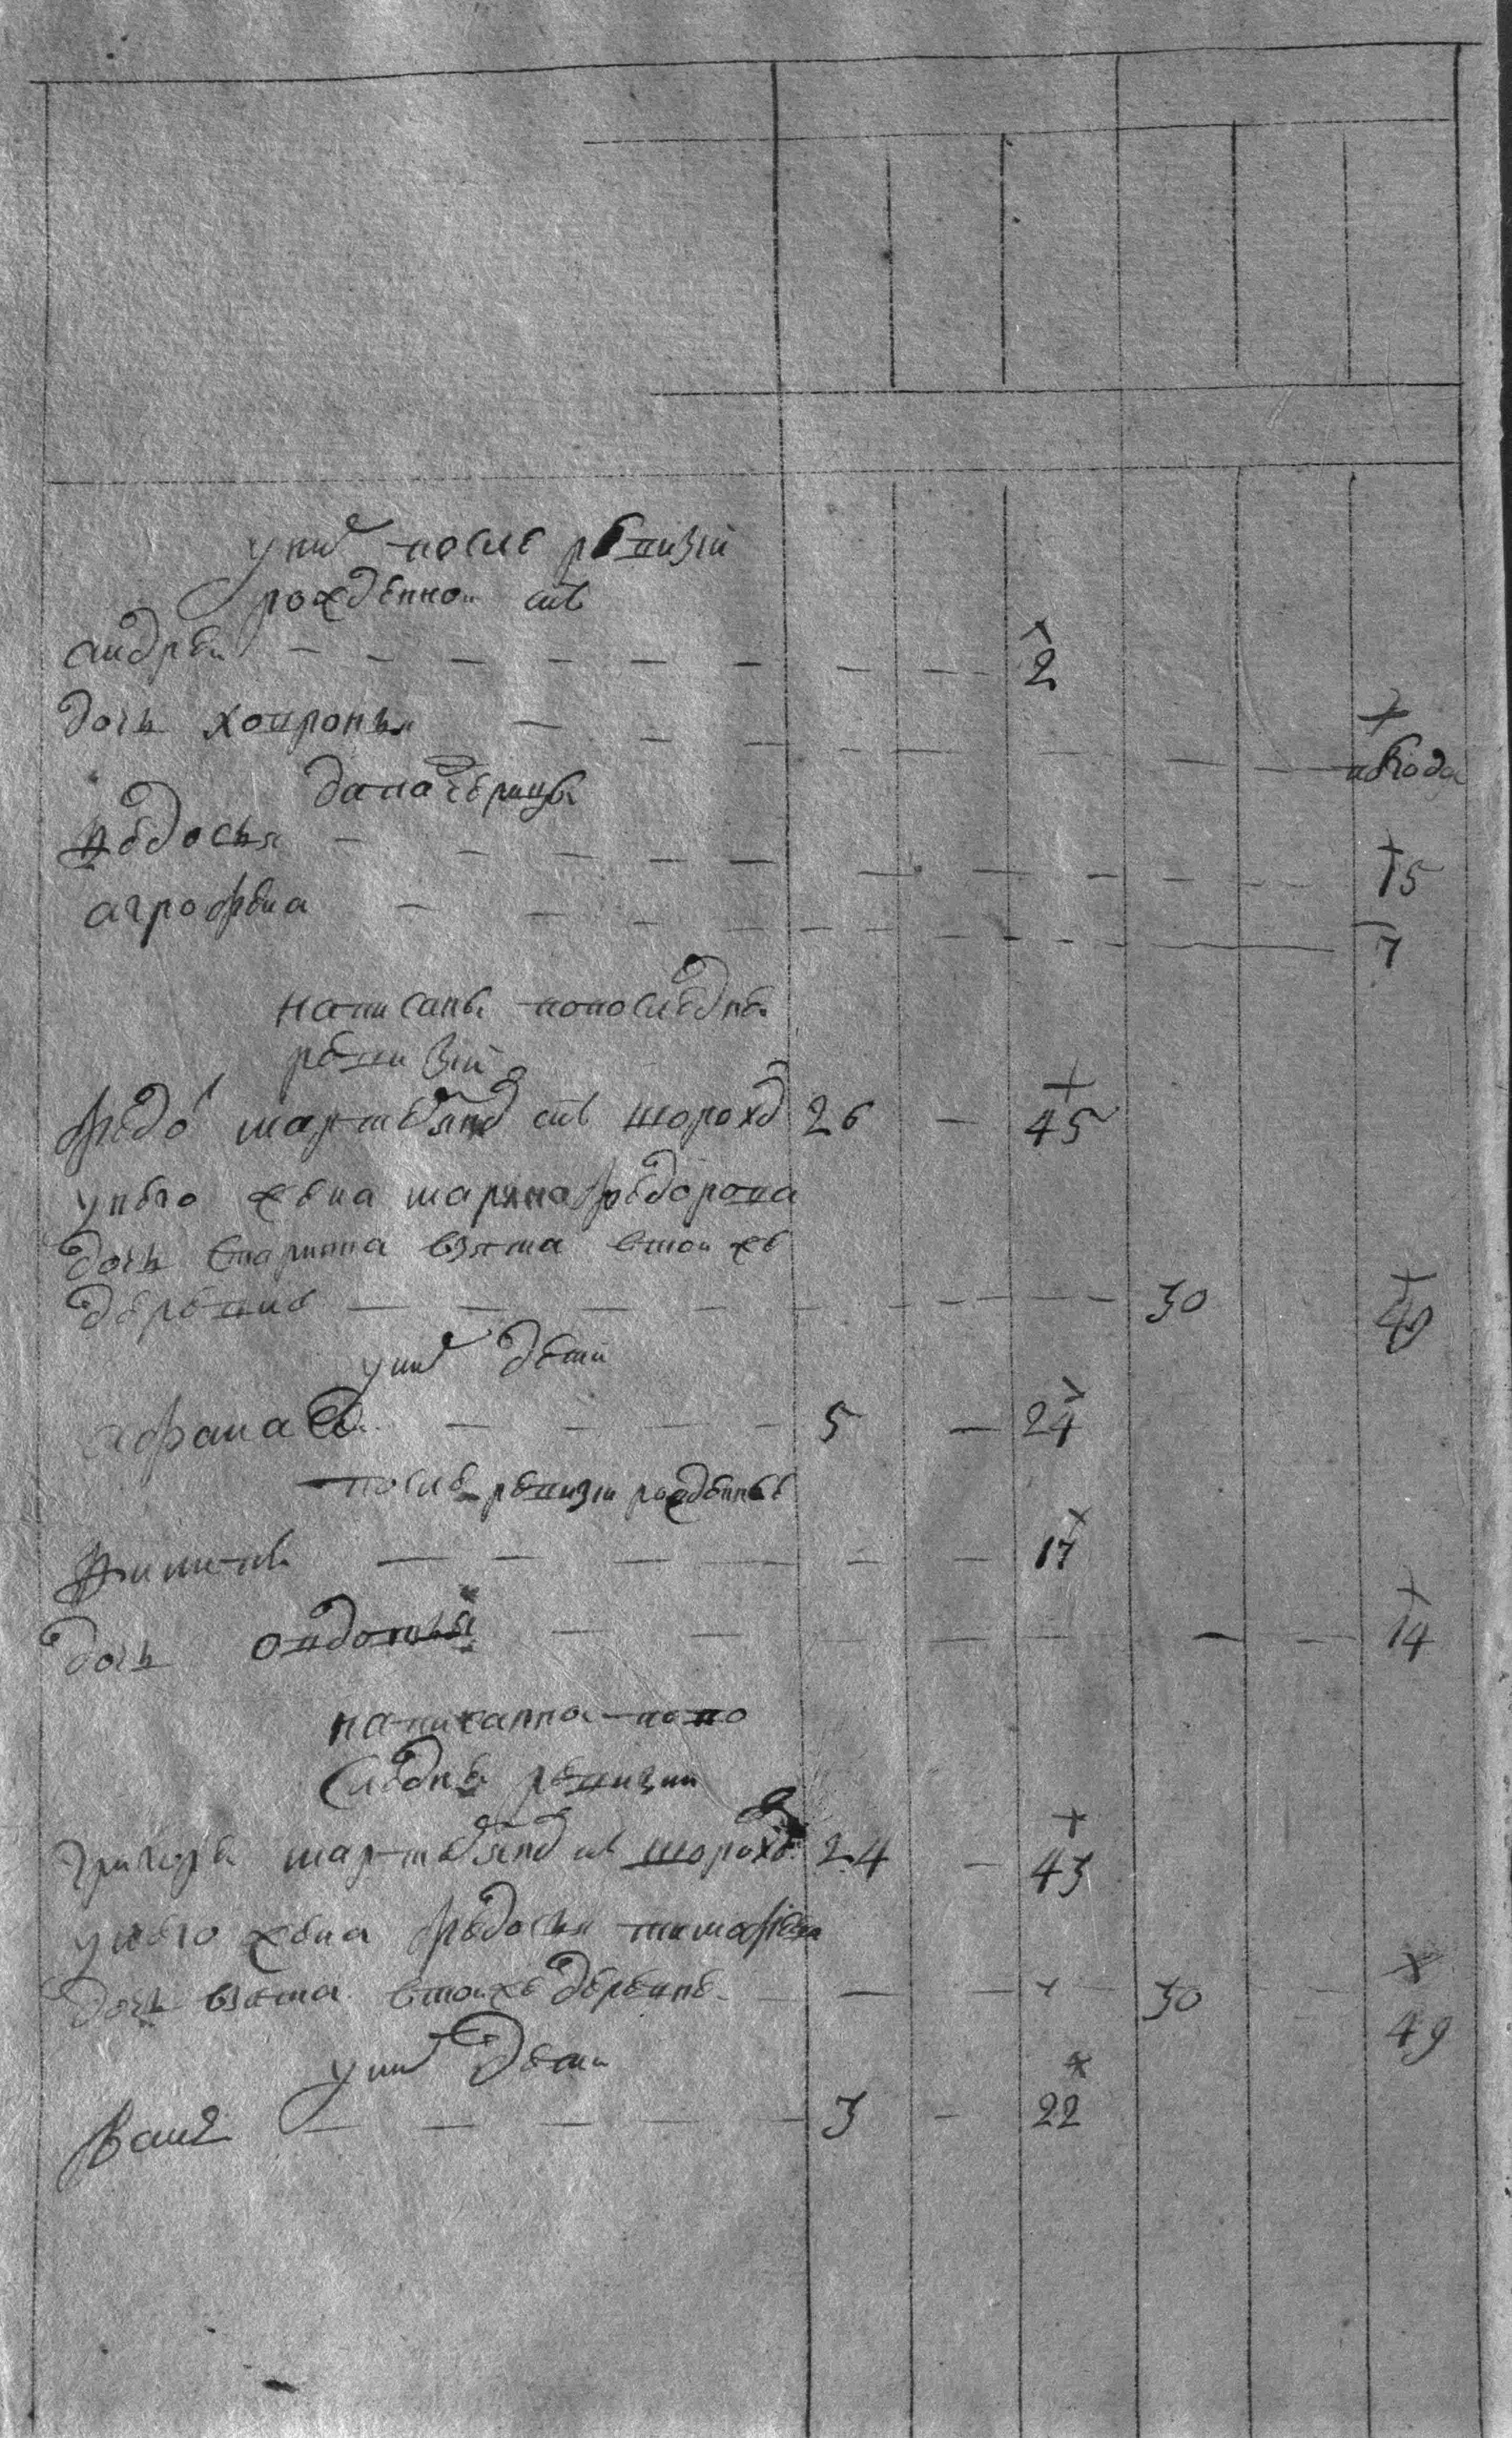 у них после ревизии
рожденнои снъ
андреи — 2
дочь ховронья — полгода
да падчерицы
ведосья — 15
агрофена — 7
написаны по последней
ревизии
федо мартемянв снъ шорохо 26 — 45
у него жена марина федорова
дочь старинна взята в тои же
деревне — 30 40
у них дети
афанасеи — 5 — 24
после ревизии рожденные
филипъ — 17
дочь овдотья — 14
написанна по по
следнеи ревизии
григореи мартемянв снъ шорохо 24 — 43
у него жена федосья тимофеева
дочь взята в тои же деревне — 30 49
у них дети
иванъ — 3 — 22